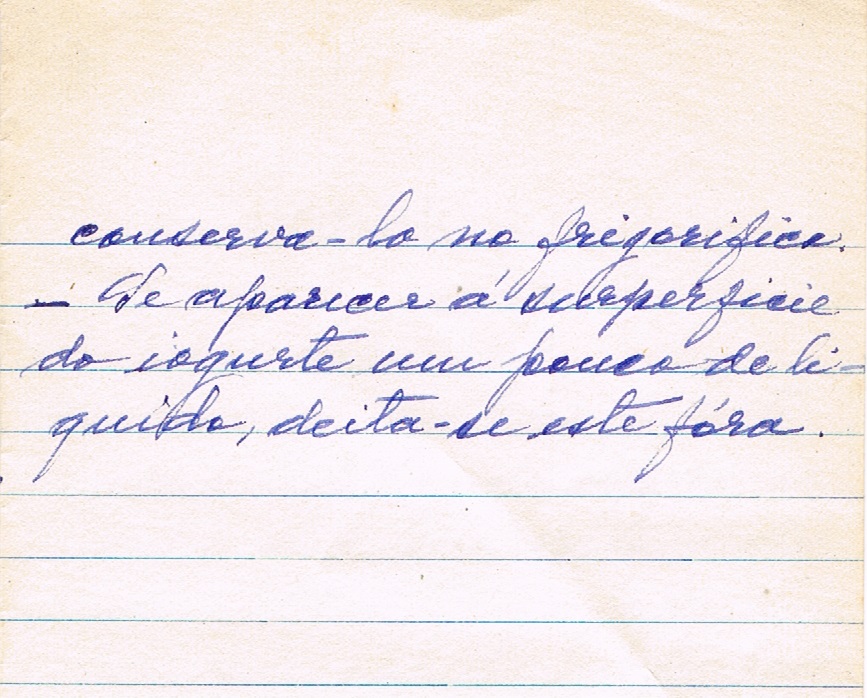 conserva-lo no frigorifico.
- Se aparecer á surperficie
do iogurte um pouco de li-
quido, deita-se este fóra.